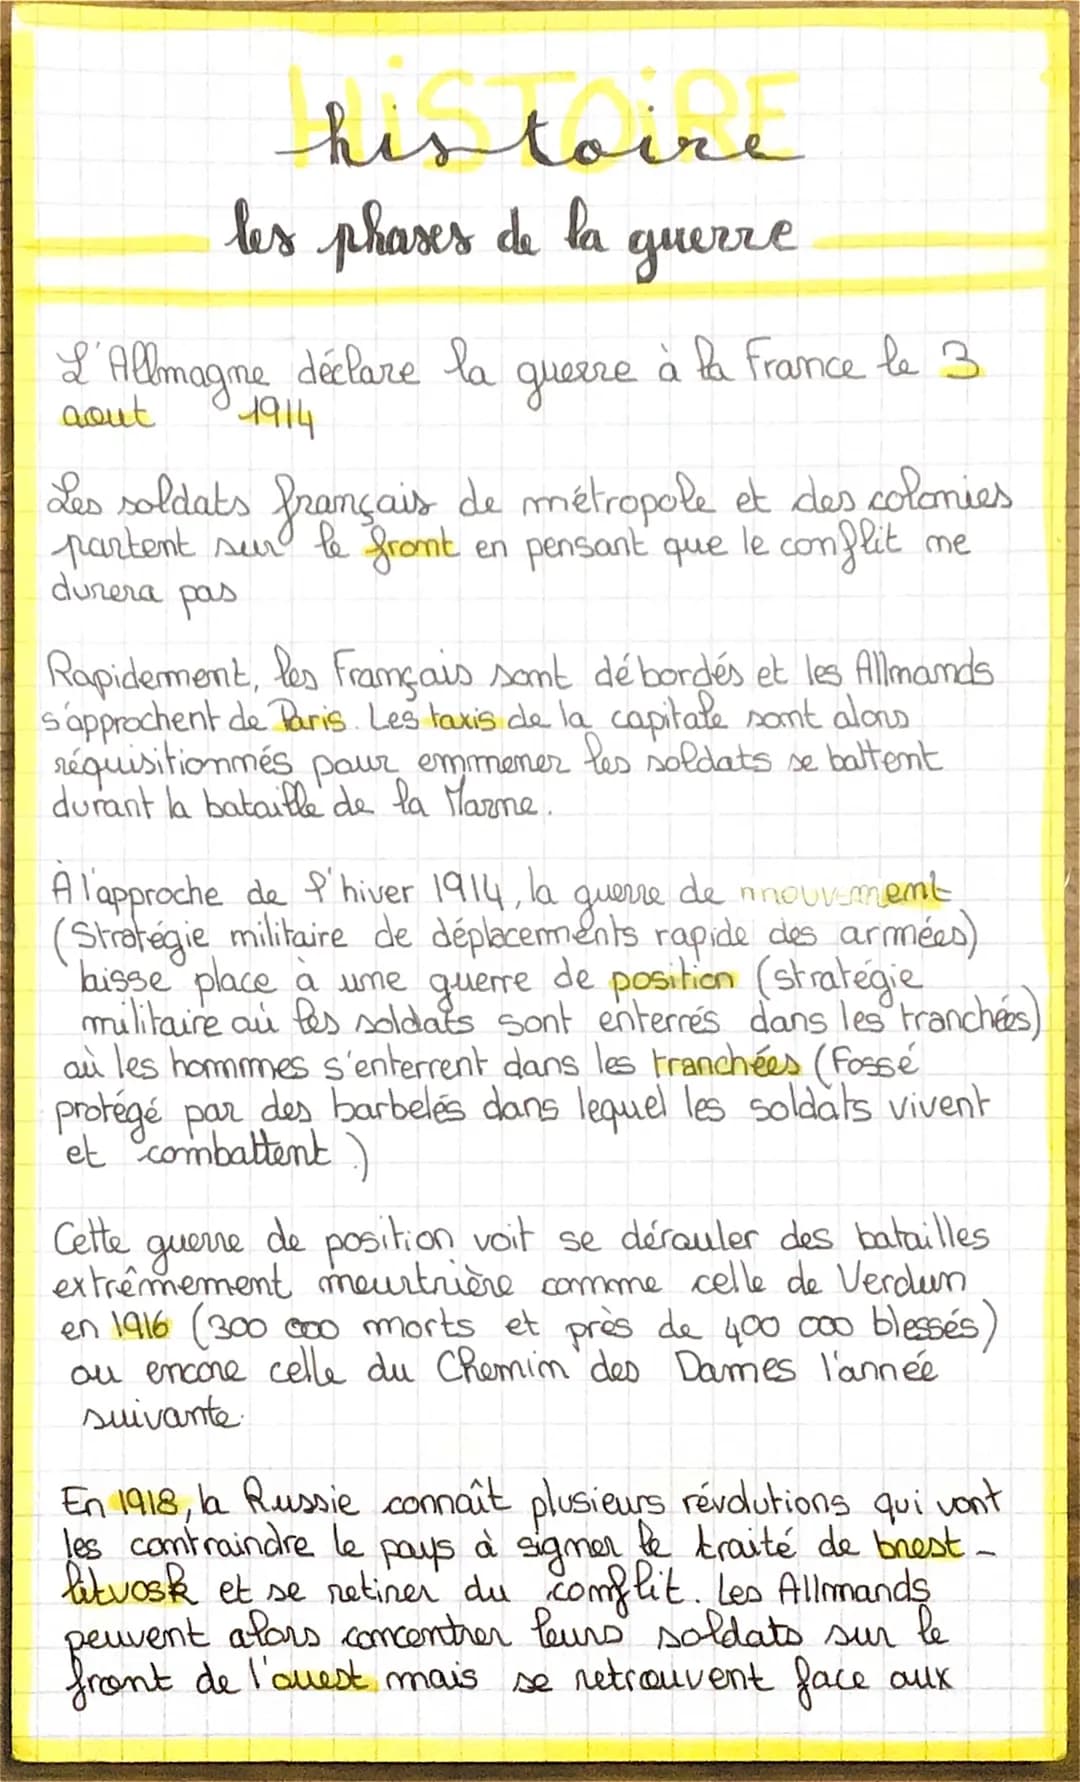 HiSTOiRE
histoire
les phases de la guerre
L'Allmagne déclare la guerre à la France le 3
aout 1914
Les soldats français de métropole et des colonies
partent sur le front en pensant que le conflit ne
durera pas
Rapidement, les Français sont débordés et les Allmands
s'approchent de Paris. Les taxis de la capitale sont alors
réquisitionnés pour emmener les soldats se battent
durant la bataille de la Marne.
À l'approche de l'hiver 1914, la guerre de mouvement
(Stratégie militaire de déplacements rapide des armées)
laisse place à une guerre de position (stratégie
militaire où les soldats sont enterrés dans les tranchées)
où les hommes s'enterrent dans les tranchées (Fossé
protégé par des barbelés dans lequel les soldats vivent
et combattent.)
Cette guerre de position voit se dérouler des batailles
extrêmement meurtrière comme celle de Verdun
en 1916 (300 000 morts et près de 400 000 blessés)
ou encore celle du Chemin des Dames l'année
suivante.
En 1918, la Russie connaît plusieurs révolutions qui vont
les contraindre le pays à signer le traité de brest-
litvosk et se retirer du conflit. Les Allmands
peuvent alors concentrer leurs soldats sur le
front de l'ouest mais se retrouvent face aux